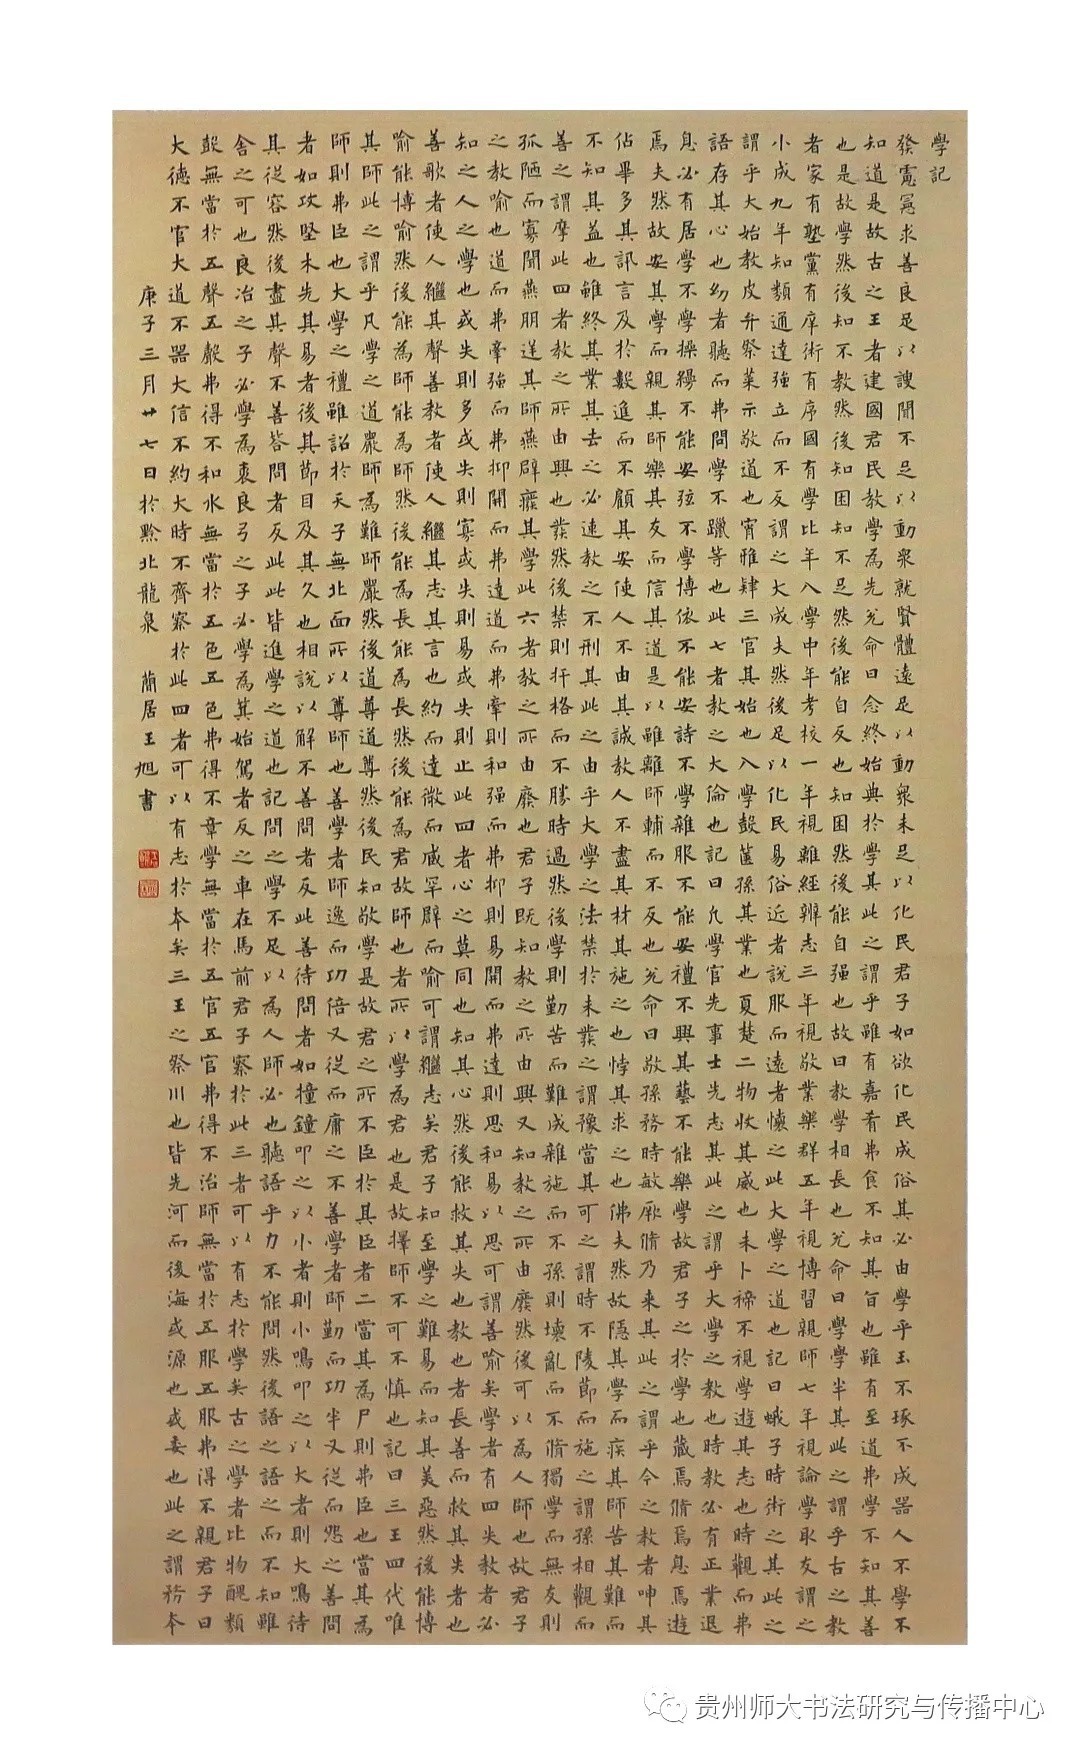 學記
發憲冩求善良足以謏聞不足以動衆就賢體遠足以動衆未足以化民君子如欲化民成俗其必由學乎玉不琢不成器人不學不
知道是故古之王者建國君民教學為先兊命曰念終始典於學其此之謂乎雖有嘉肴弗食不知其旨也雖有至道弗學不知其善
也是故學然後知不教然後知困知不足然後能自反也知困然後能自强也故曰教學相長也兊命曰學學半其此之謂乎古之教
者家有塾黨有庠術有序國有學比年入學中年考校一年視離經辨志三年視敬業樂群五年視博習親師七年視論學取友謂之
小成九年知類通達強立而不反謂之大成夫然後足以化民易俗近者說服而遠者懷之此大學之道也記曰蛾子時術之其此之
謂乎大始教皮弁祭菜示敬道也宵雅肄三官其始也入學鼓篋孫其業也夏楚二物收其威也未卜禘不視學遊其志也時觀而弗
語存其心也幼者聽而弗問學不躐等也此七者教之大倫也記曰凡學官先事士先志其此之謂乎大學之教也時教必有正業退
息必有居學不學操縵不能安弦不學博依不能安詩不學雜服不能安禮不興其藝不能樂學故君子之於學也藏焉脩焉息焉遊
焉夫然故安其學而親其師樂其友而信其道是以雖離師輔而不反也兊命曰敬孫務時敏厥脩乃来其此之謂乎今之教者呻其
佔畢多其訊言及於數進而不顧其安使人不由其誠教人不盡其材其施之也悖其求之也佛夫然故隱其學而疾其師苦其難而
不知其益也雖終其業其去之必速教之不刑其此之由乎大學之法禁於未發之謂豫當其可之謂時不陵節而施之謂孫相觀而
善之謂摩此四者教之所由興也發然後禁則扞格而不勝時過然後學則勤苦而難成雜施而不孫則壞亂而不脩獨學而無友則
孤陋而寡聞燕朋逆其師燕辟癈其學此六者教之所由廢也君子既知教之所由興又知教之所由廢然後可以為人師也故君子
之教喻也道而弗牽強而弗抑開而弗達道而弗牽則和强而弗抑則易開而弗達則思和易以思可謂善喻矣學者有四失教者必
知之人之學也或失則多或失則寡或失則易或失則止此四者心之莫同也知其心然後能救其失也教也者長善而救其失者也
善歌者使人繼其聲善教者使人繼其志其言也約而達微而臧罕辟而喻可謂繼志矣君子知至學之難易而知其美惡然後能博
喻能博喻然後能為師能為師然後能為長能為長然後能為君故師也者所以學為君也是故擇師不可不慎也記曰三王四代唯
其師此之謂乎凡學之道嚴師為難師嚴然後道尊道尊然後民知敬學是故君之所不臣於其臣者二當其為尸則弗臣也當其為
師則弗臣也大學之禮雖詔於天子無北面所以尊師也善學者師逸而功倍又從而庸之不善學者師勤而功半又從而怨之善問
者如攻堅木先其易者後其節目及其久也相說以解不善問者反此善待問者如撞鐘叩之以小者則小鳴叩之以大者則大鳴待
其從容然後盡其聲不善答問者反此此皆進學之道也記問之學不足以為人師必也聽語乎力不能問然後語之語之而不知雖
舍之可也良冶之子必學為裘良弓之子必學為箕始駕者反之車在馬前君子察於此三者可以有志於學矣古之學者比物醜類
鼓無當於五聲五聲弗得不和水無當於五色五色弗得不章學無當於五官五官弗得不治師無當於五服五服弗得不親君子曰
大德不官大道不器大信不約大時不齊察於此四者可以有志於本矣三王之祭川也皆先河而後海或源也或委也此之謂務本
庚子三月廿七日於黔北龍泉 蘭居王旭書
贵州师大书法研究与传播中心